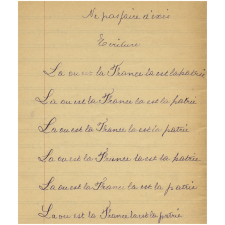 Ecriture
La ou est la France la est la patrie
La ou est la France la est la patrie
La ou est la France la est la patrie
La ou est la France la est la patrie
La ou est la France la est la patrie
La ou est la France la est la patrie